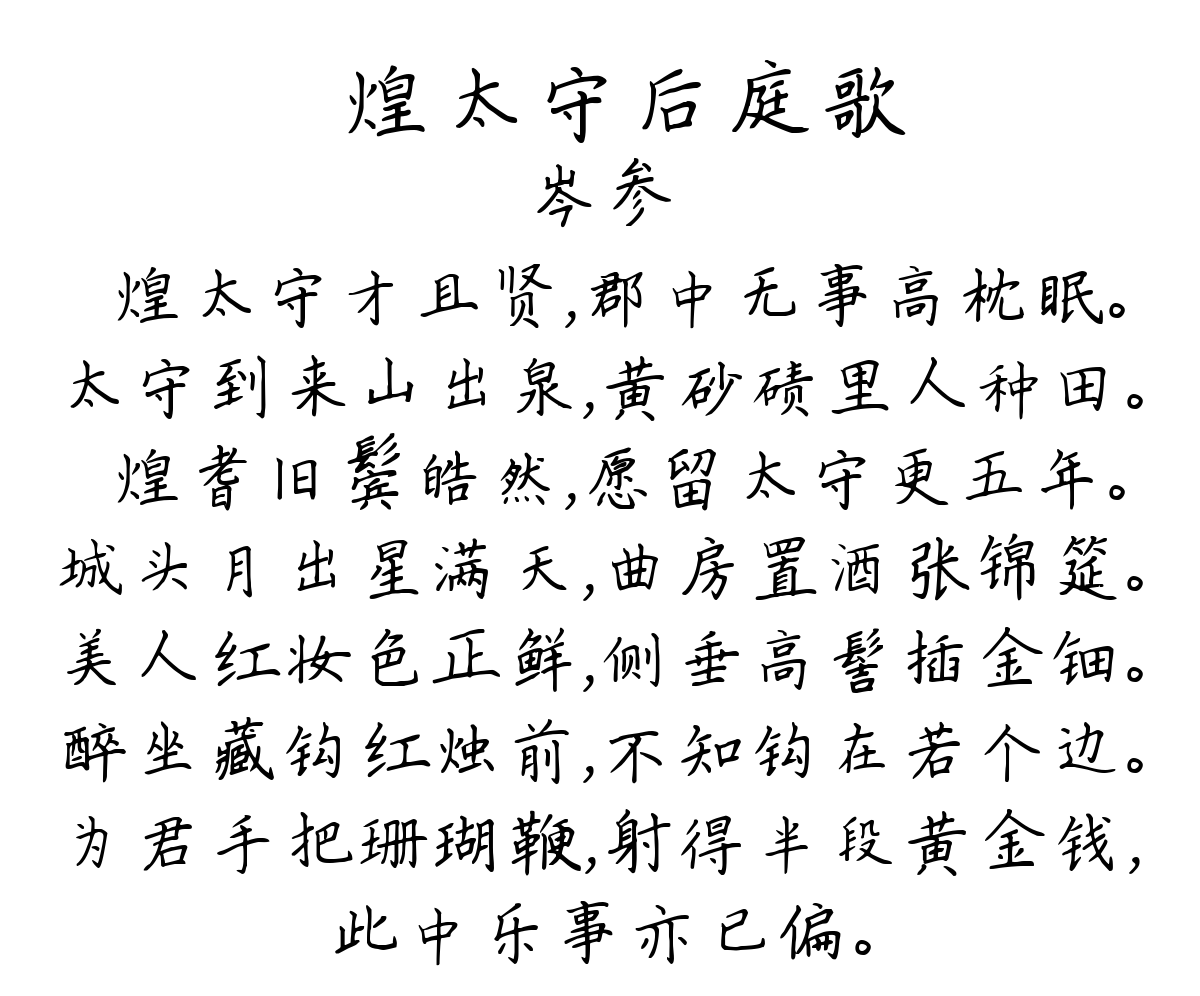 煌太守后庭歌
岑参
煌太守才且贤,郡中无事高枕眠。
太守到来山出泉,黄砂碛里人种田。
煌耆旧鬓皓然,愿留太守更五年。
城头月出星满天,曲房置酒张锦筵。
美人红妆色正鲜,侧垂高髻插金钿。
醉坐藏钩红烛前,不知钩在若个边。
为君手把珊瑚鞭,射得半段黄金钱,
此中乐事亦已偏。